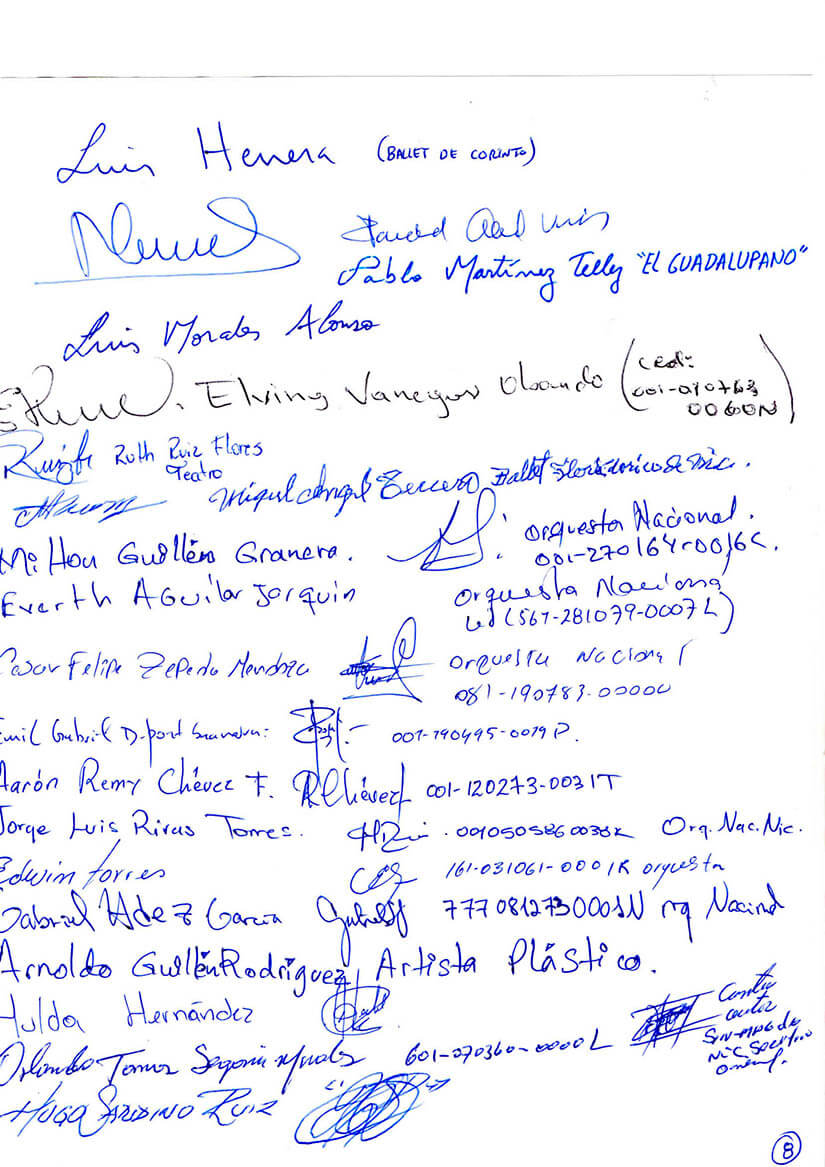 Luis Herrera (BALLET DE CORINTO)
Pablo Martínez Tellez "EL GUADALUPANO"
Luis Morales Alonso
Elving Vanegas Obando (Ced:
001-090763
0060N)
Ruth Ruiz Flores
Teatro
Miguel Angel Tercero Ballet Folklorico de Nic.
Milton Guillén Granera. Orquesta Nacional.
001-270164-0016K.
Everth Aguilar Jarquin Orquesta Nacional
Ced (567-281079-0007L)
Cesar Felipe Zepeda Mendoza Orquesta Nacional
081-190783-0000U
Emil Gabriel 001-190495-0019P.
Aarón Remy Chévez F. R Chévez F 001-120273-0031T
Jorge Luis Rivas Torres. 0010505860038K Orq. Nac. Nic.
Edwin Torres 161-031061-0001K orquesta
Gabriel Hdez García 7770812730001N Orq Nacional
Arnoldo Guillén Rodríguez, Artista Plástico.
Hulda Hernández
Orlando Tomas Segovia 601-070360-0000L
HUGO SARIDINO RUIZ
8